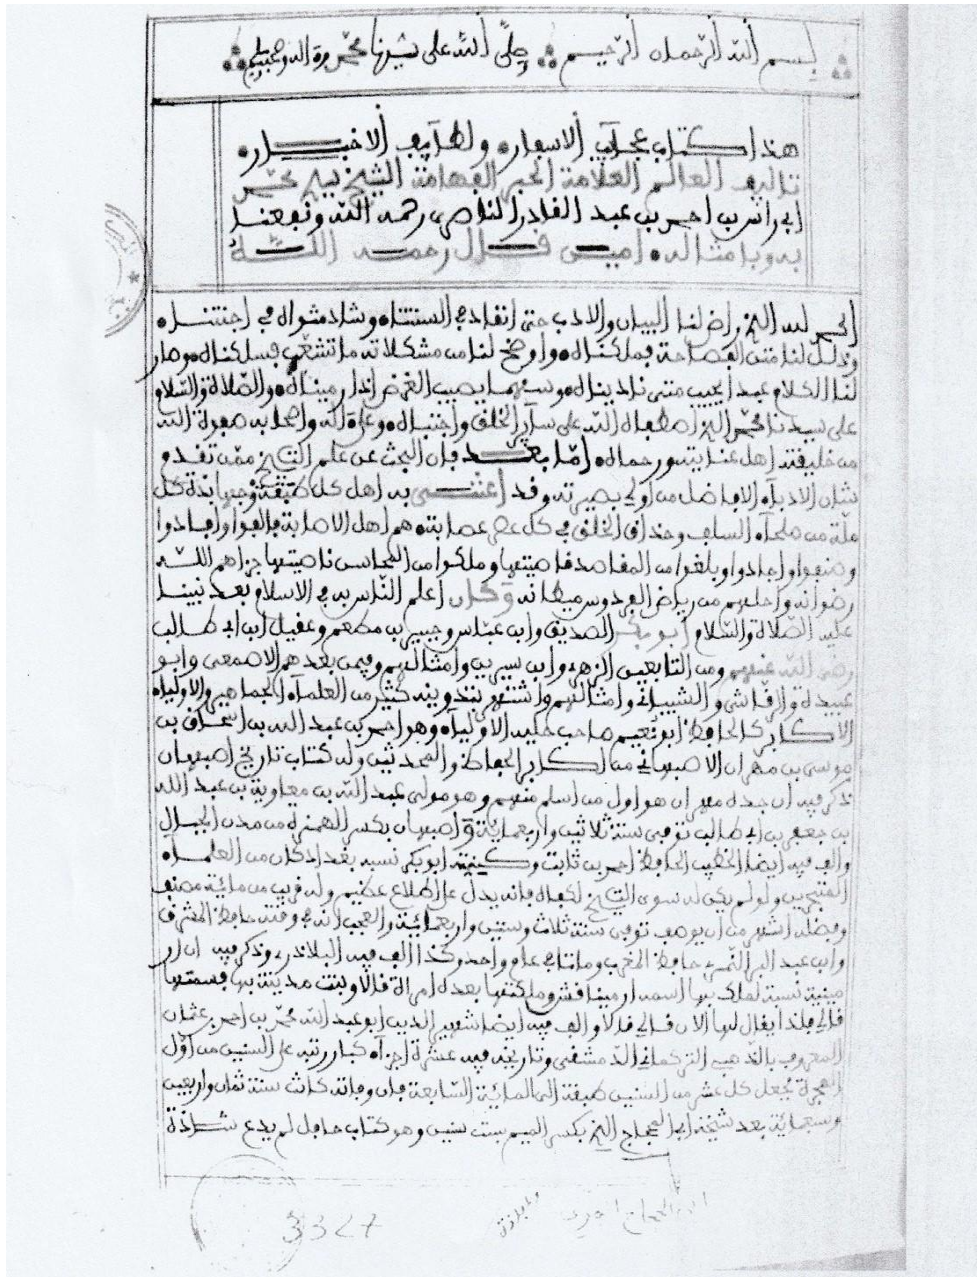 بسم الله الرحمان الرحيم صلى الله على نبينا محمد وءاله وصحبه
هذا كتاب عجائب الاسفار ولطائف الاخبار
تاليف العالم العلامة الحبر الفهامة الشيخ سيدي محمد
ابي راس بن احمد بن عبد القادر الناصري رحمه الله ونفعنا
به وبامثاله امين قال رحمه الله
الحمد لله الذي راض لنا البيان والادب حتى انقاد في السنتناه وشاد مثواه في اجنتناه
وذلل لنا متن الفصاحة فملكناه واوضح لنا من مشكلاته ما تشعب فسلكناه وصار
لنا الكلام عبدا يجيب متى ناديناه وسهما يصيب الغرض اذا رميناه والصلاة والسلام
على سيدنا محمد الذي اصطفاه الله على سائر الخلق واجتباه وعلى ءاله واصحابه صفوة الله
من خليقته اهل عنايته ورحماه اما بعد فان البحث عن علم التاريخ ممن تقدم
شان الادباء الافاضل من اولي بصيرته وقد اعتنى به اهل كل طبقة وجهابذة كل
ملة من صلحاء السلف وحذاق الخلف في كل عصر عصابة هم اهل الاصابة فالفوا وافادوا
وصنفوا واجادوا وبلغوا من المقاصد قاصيتها وملكوا من المحاسن ناصيتها جزاهم الله
رضوانه واحلهم من رياض الفردوس ميطانه وكان اعلم الناس به في الاسلام بعد نبينا
عليه الصلاة والسلام ابو بكر الصديق وابن عباس وجبير بن مطعم وعقيل ابن ابي طالب
رضي الله عنهم ومن التابعين الزهري وابن سيرين وامثالهم وفيمن بعدهم الاصمعي وابو
عبيدة والرقاشي والشيباني وامثالهم واشتهر بتدوينه كثير من العلماء الجماهير والاولياء
الاكابر كالحافظ ابو نعيم صاحب حلية الاولياء وهو احمد بن عبد الله بن اسحاق بن
موسى بن مهران الاصبهاني من اكابر الحفاظ والمحدثين وله كتاب تاريخ اصبهان
ذكر فيه ان جده مهران هو اول من اسلم منهم وهو مولى عبد الله بن معاوية بن عبد الله
بن جعفر بن ابي طالب توفي سنة ثلاثين واربعمائة واصبهان بكسر الهمزة من مدن الجبال
والف فيه ايضا الخطيب الحافظ احمد بن ثابت وكنيته ابو بكر نسبه بغداد كان من العلماء
المتبحرين ولو لم يكن له سوى التاريخ لكفاه فانه يدل على اطلاع عظيم وله قريب من مائة مصنف
وفضله اشهر من ان يوصف توفي سنة ثلاث وستين واربعمائة والعجب انه في وقته حافظ المشرق
وابن عبد البر النمري حافظ المغرب وماتا في عام واحد وكذا الف فيه البلاذري وذكر فيه ان ار
مينية نسبة لملك بها اسمه ارمينافش وملكتها بعده امراة قالا وبنت مدينة بها فسمتها
قالي فلذا يقال لها الان قالي قلا والف فيه ايضا شهير الدين ابو عبد الله محمد بن احمد بن عثمان
المعروف بالذهبي التركماني الدمشقي وتاريخه فيه عشرة اجزاء كبار رتبه على السنين من اول
الهجرة يجعل كل عشر من السنين طبقة الى المائة السابعة فان وفاته كانت سنة ثمان واربعين
وسبعمائة بعد شيخه ابي الحجاج المزي بكسر الميم بست سنين وهو كتاب حافل لم يدع شاذة
3327